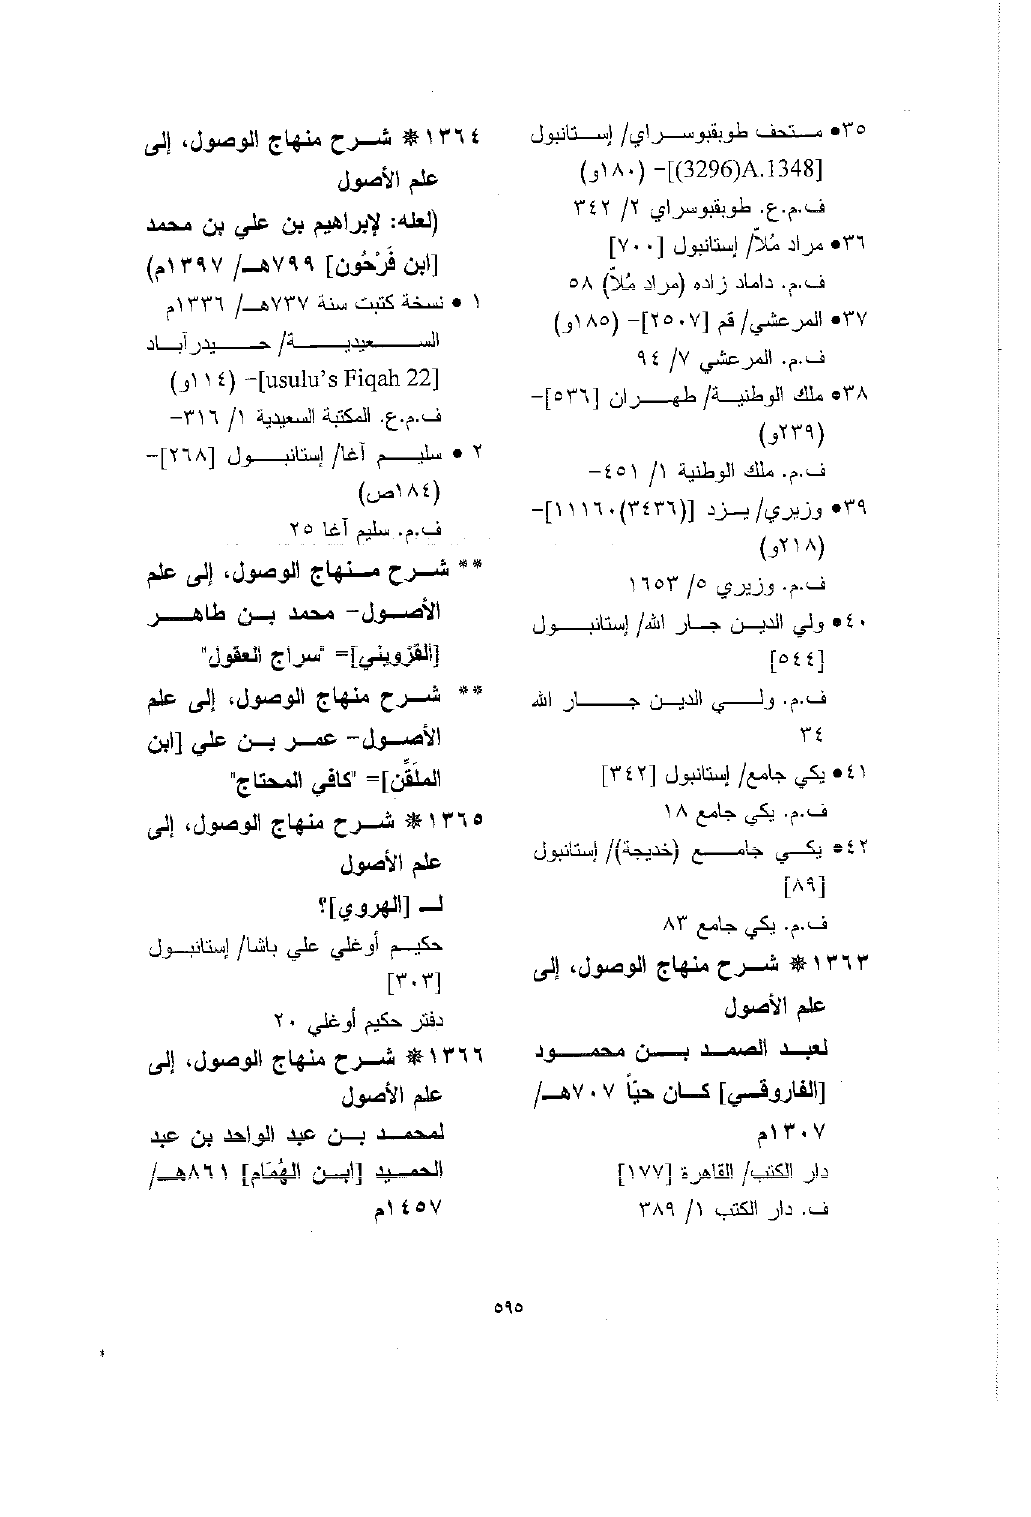 ٣٥• متحف طوبقبوسراي/ إستانبول
[3296)A.1348)]- (١٨٠و)
ف.م.ع. طوبقبوسراي ٢/ ٣٤٢
٣٦• مراد مُلاّ/ إستانبول [٧٠٠]
ف.م. داماد زاده (مراد مُلاّ) ٥٨
٣٧• المرعشي/ قم [٢٥٠٧]- (١٨٥و)
ف.م. المرعشي ٧/ ٩٤
٣٨• ملك الوطنية/ طهران [٥٣٦]-
(٢٣٩و)
ف.م. ملك الوطنية ١/ ٤٥١-
٣٩• وزيري/ يزد [(٣٤٣٦)١١١٦٠]-
(٢١٨و)
ف.م. وزيري ٥/ ١٦٥٣
٤٠• ولي الدين جار الله/ إستانبول
[٥٤٤]
ف.م. ولي الدين جار الله
٣٤
٤١• يكي جامع/ إستانبول [٣٤٢]
ف.م. يكي جامع ١٨
٤٢• يكي جامع (خديجة)/ إستانبول
[٨٩]
ف.م. يكي جامع ٨٣
١٣٦٣* شرح منهاج الوصول، إلى
علم الأصول
لعبد الصمد بن محمود
[الفاروقي] كان حيّاً ٧٠٧هـ/
١٣٠٧م
دار الكتب/ القاهرة [١٧٧]
ف. دار الكتب ١/ ٣٨٩
١٣٦٤* شرح منهاج الوصول، إلى
علم الأصول
(لعله: لإبراهيم بن علي بن محمد
[ابن فَرْحُون] ٧٩٩هـ/ ١٣٩٧م)
١ • نسخة كتبت سنة ٧٣٧هـ/ ١٣٣٦م
السعيدية/ حيدرآباد
[usulu's Fiqah 22]- (١١٤و)
ف.م.ع. المكتبة السعيدية ١/ ٣١٦-
٢ • سليم آغا/ إستانبول [٢٦٨]-
(١٨٤ص)
ف.م. سليم آغا ٢٥
** شرح منهاج الوصول، إلى علم
الأصول- محمد بن طاهر
[القزويني]= "سراج العقول"
** شرح منهاج الوصول، إلى علم
الأصول- عمر بن علي [ابن
الملَقِّن]= "كافي المحتاج"
١٣٦٥* شرح منهاج الوصول، إلى
علم الأصول
لـ [الهروي]؟
حكيم أوغلي علي باشا/ إستانبول
[٣٠٣]
دفتر حكيم أوغلي ٢٠
١٣٦٦* شرح منهاج الوصول، إلى
علم الأصول
لمحمد بن عبد الواحد بن عبد
الحميد [ابن الهُمَام] ٨٦١هـ/
١٤٥٧م
٥٩٥
*